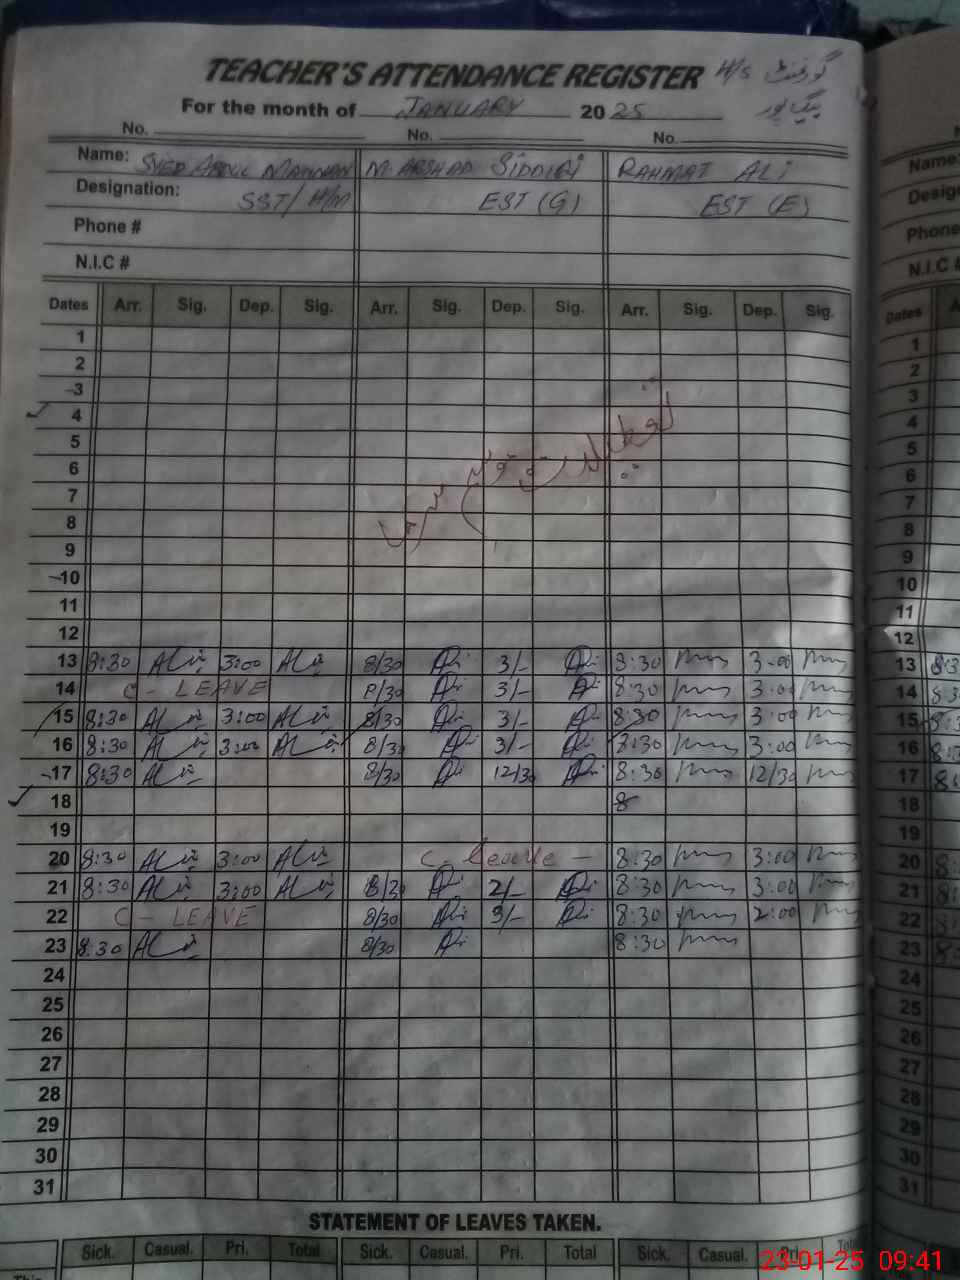 TEACHER'S ATTENDANCE REGISTER H/S گورنمنٹ
For the month of JANUARY 2025 بیگ پور
No. No. No.
Name: SYED ABDUL MANNAN M. ARSHAD SIDDIQI RAHMAT ALI
Designation: SST/H/M EST (G) EST (E)
Phone #
N.I.C #
Dates Arr. Sig. Dep. Sig. Arr. Sig. Dep. Sig. Arr. Sig. Dep. Sig.
1
2
3
4
5
6
7
8
9
10
11
12
تعطیلات موسم سرما
13 8:30 3:00 8/30 3/- 8:30 3:00
14 C - LEAVE 8/30 3/- 8:30 3:00
15 8:30 3:00 8/30 3/- 8:30 3:00
16 8:30 3:00 8/30 3/- 8:30 3:00
17 8:30 8/30 12/30 8:30 12/30
18 8
19
20 8:30 3:00 C - Leave - 8:30 3:00
21 8:30 3:00 8/30 2/- 8:30 3:00
22 C - LEAVE 8/30 3/- 8:30 2:00
23 8:30 8/30 8:30
24
25
26
27
28
29
30
31
STATEMENT OF LEAVES TAKEN.
Sick. Casual. Pri. Total Sick. Casual. Pri. Total Sick. Casual. Pri. Total
This
Name:
Phone
N.I.C #
Dates
1
2
3
4
5
6
7
8
9
10
11
12
13
14
15
16
17
18
19
20
21
22
23
24
25
26
27
28
29
30
31
23-01-25 09:41